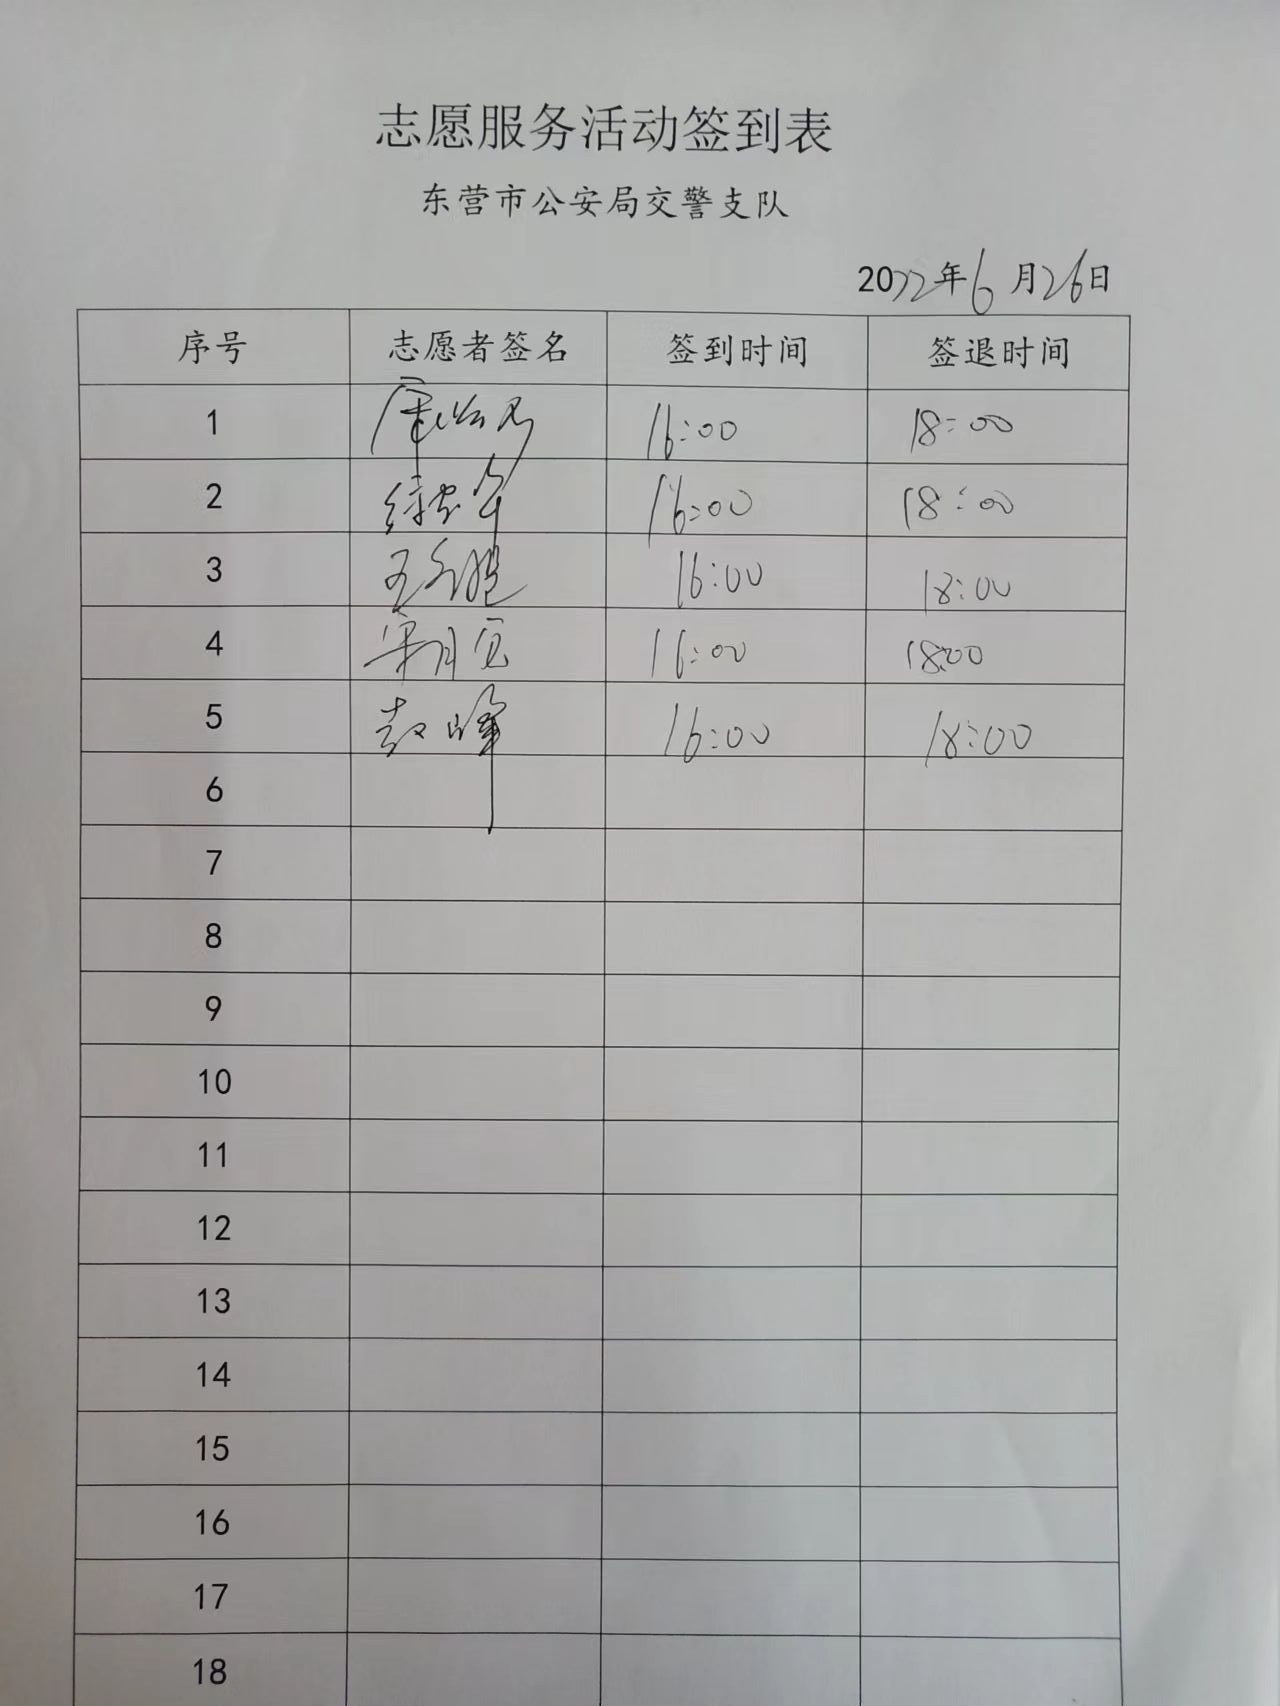 志愿服务活动签到表
东营市公安局交警支队
2022年6月26日
序号 志愿者签名 签到时间 签退时间
1 16:00 18:00
2 16:00 18:00
3 16:00 18:00
4 16:00 18:00
5 赵峰 16:00 18:00
6
7
8
9
10
11
12
13
14
15
16
17
18